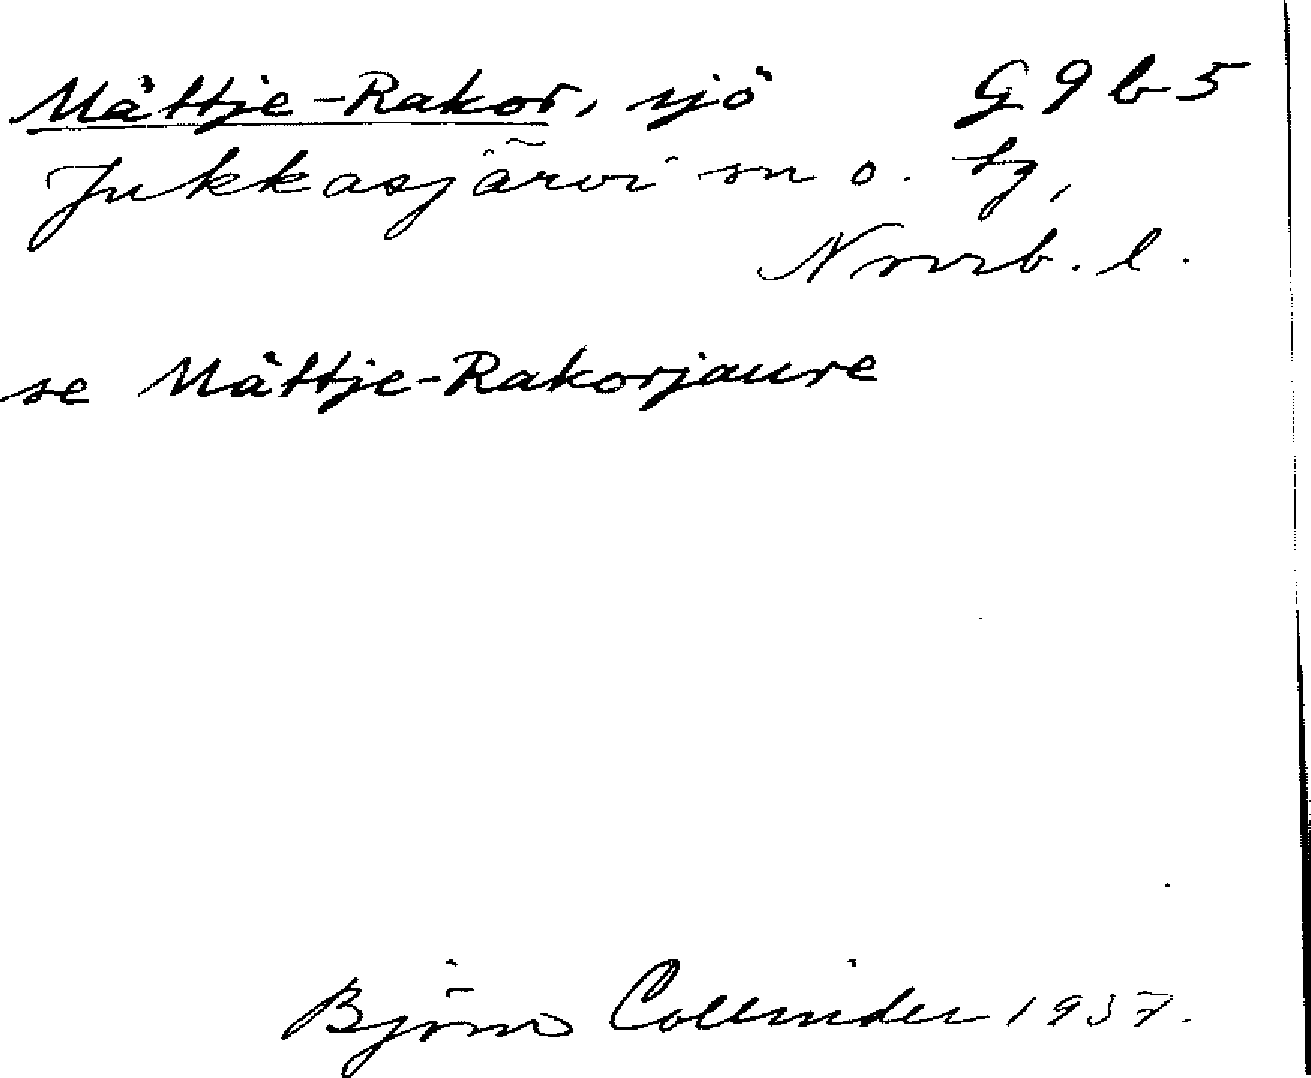 Mättje-Rakor, sjö G9b5
Jukkasjärvi sn o. tg,
Norrb. l.
se Mättje-Rakorjaure
Björn Collinder 1937.